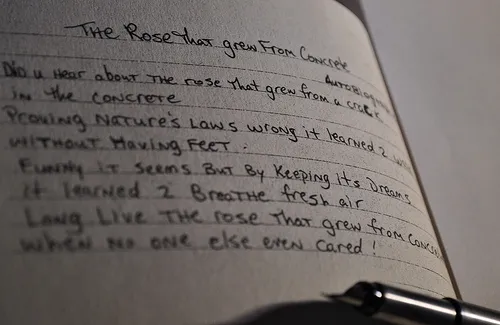 The Rose that grew From Concrete
Autobiographi
Did u Hear about The rose that grew from a crack
in the concrete
Proving Nature's Laws wrong it learned 2
without Having Feet.
Funny it seems But By Keeping its Dreams
it learned 2 Breathe fresh air
Long Live The rose that grew from Concr
when no one else even cared!